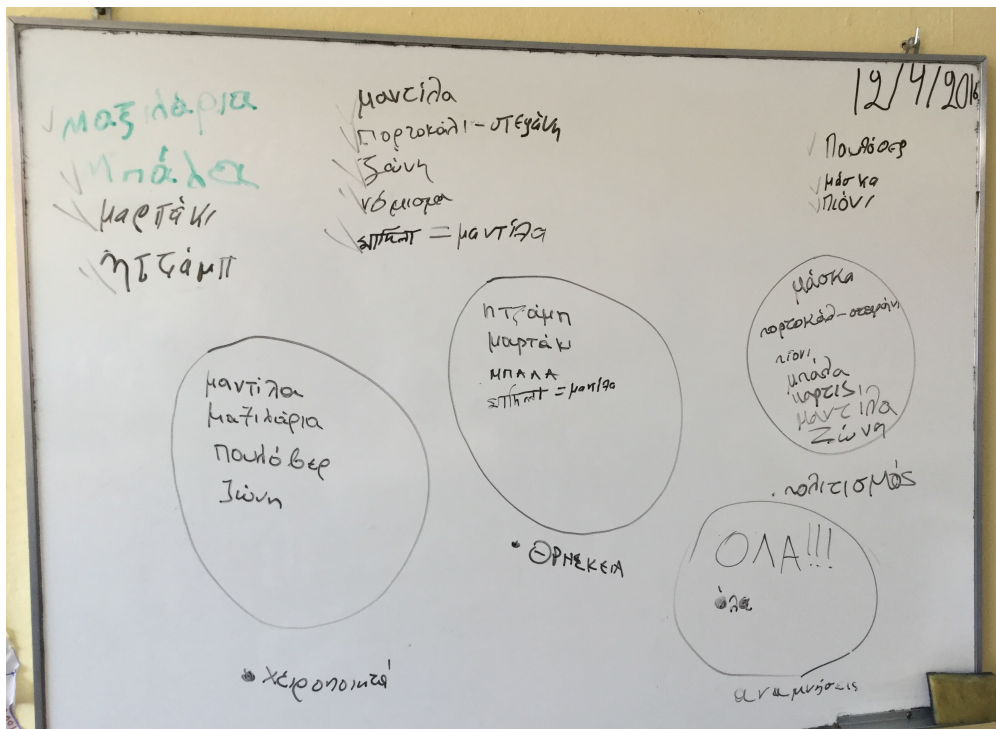 μαξιλάρια
μπάλα
μαρτάκι
ητζάμπ
μαντίλα
πορτοκάλι-στεφάνη
ζώνη
νόμισμα
= μαντίλα
12/4/2016
Πουλόβερ
μάσκα
πιόνι
μαντίλα
μαξιλάρια
Πουλόβερ
ζώνη
• χειροποιητά
ητζάμπ
μαρτάκι
ΜΠΑΛΑ
= μαντίλα
• ΘΡΗΣΚΕΙΑ
μάσκα
πορτοκάλ-στεφάνη
πιόνι
μπάλα
μαντίλα
Ζώνη
. πολιτισμός
ΟΛΑ!!!
όλα
αναμνήσεις